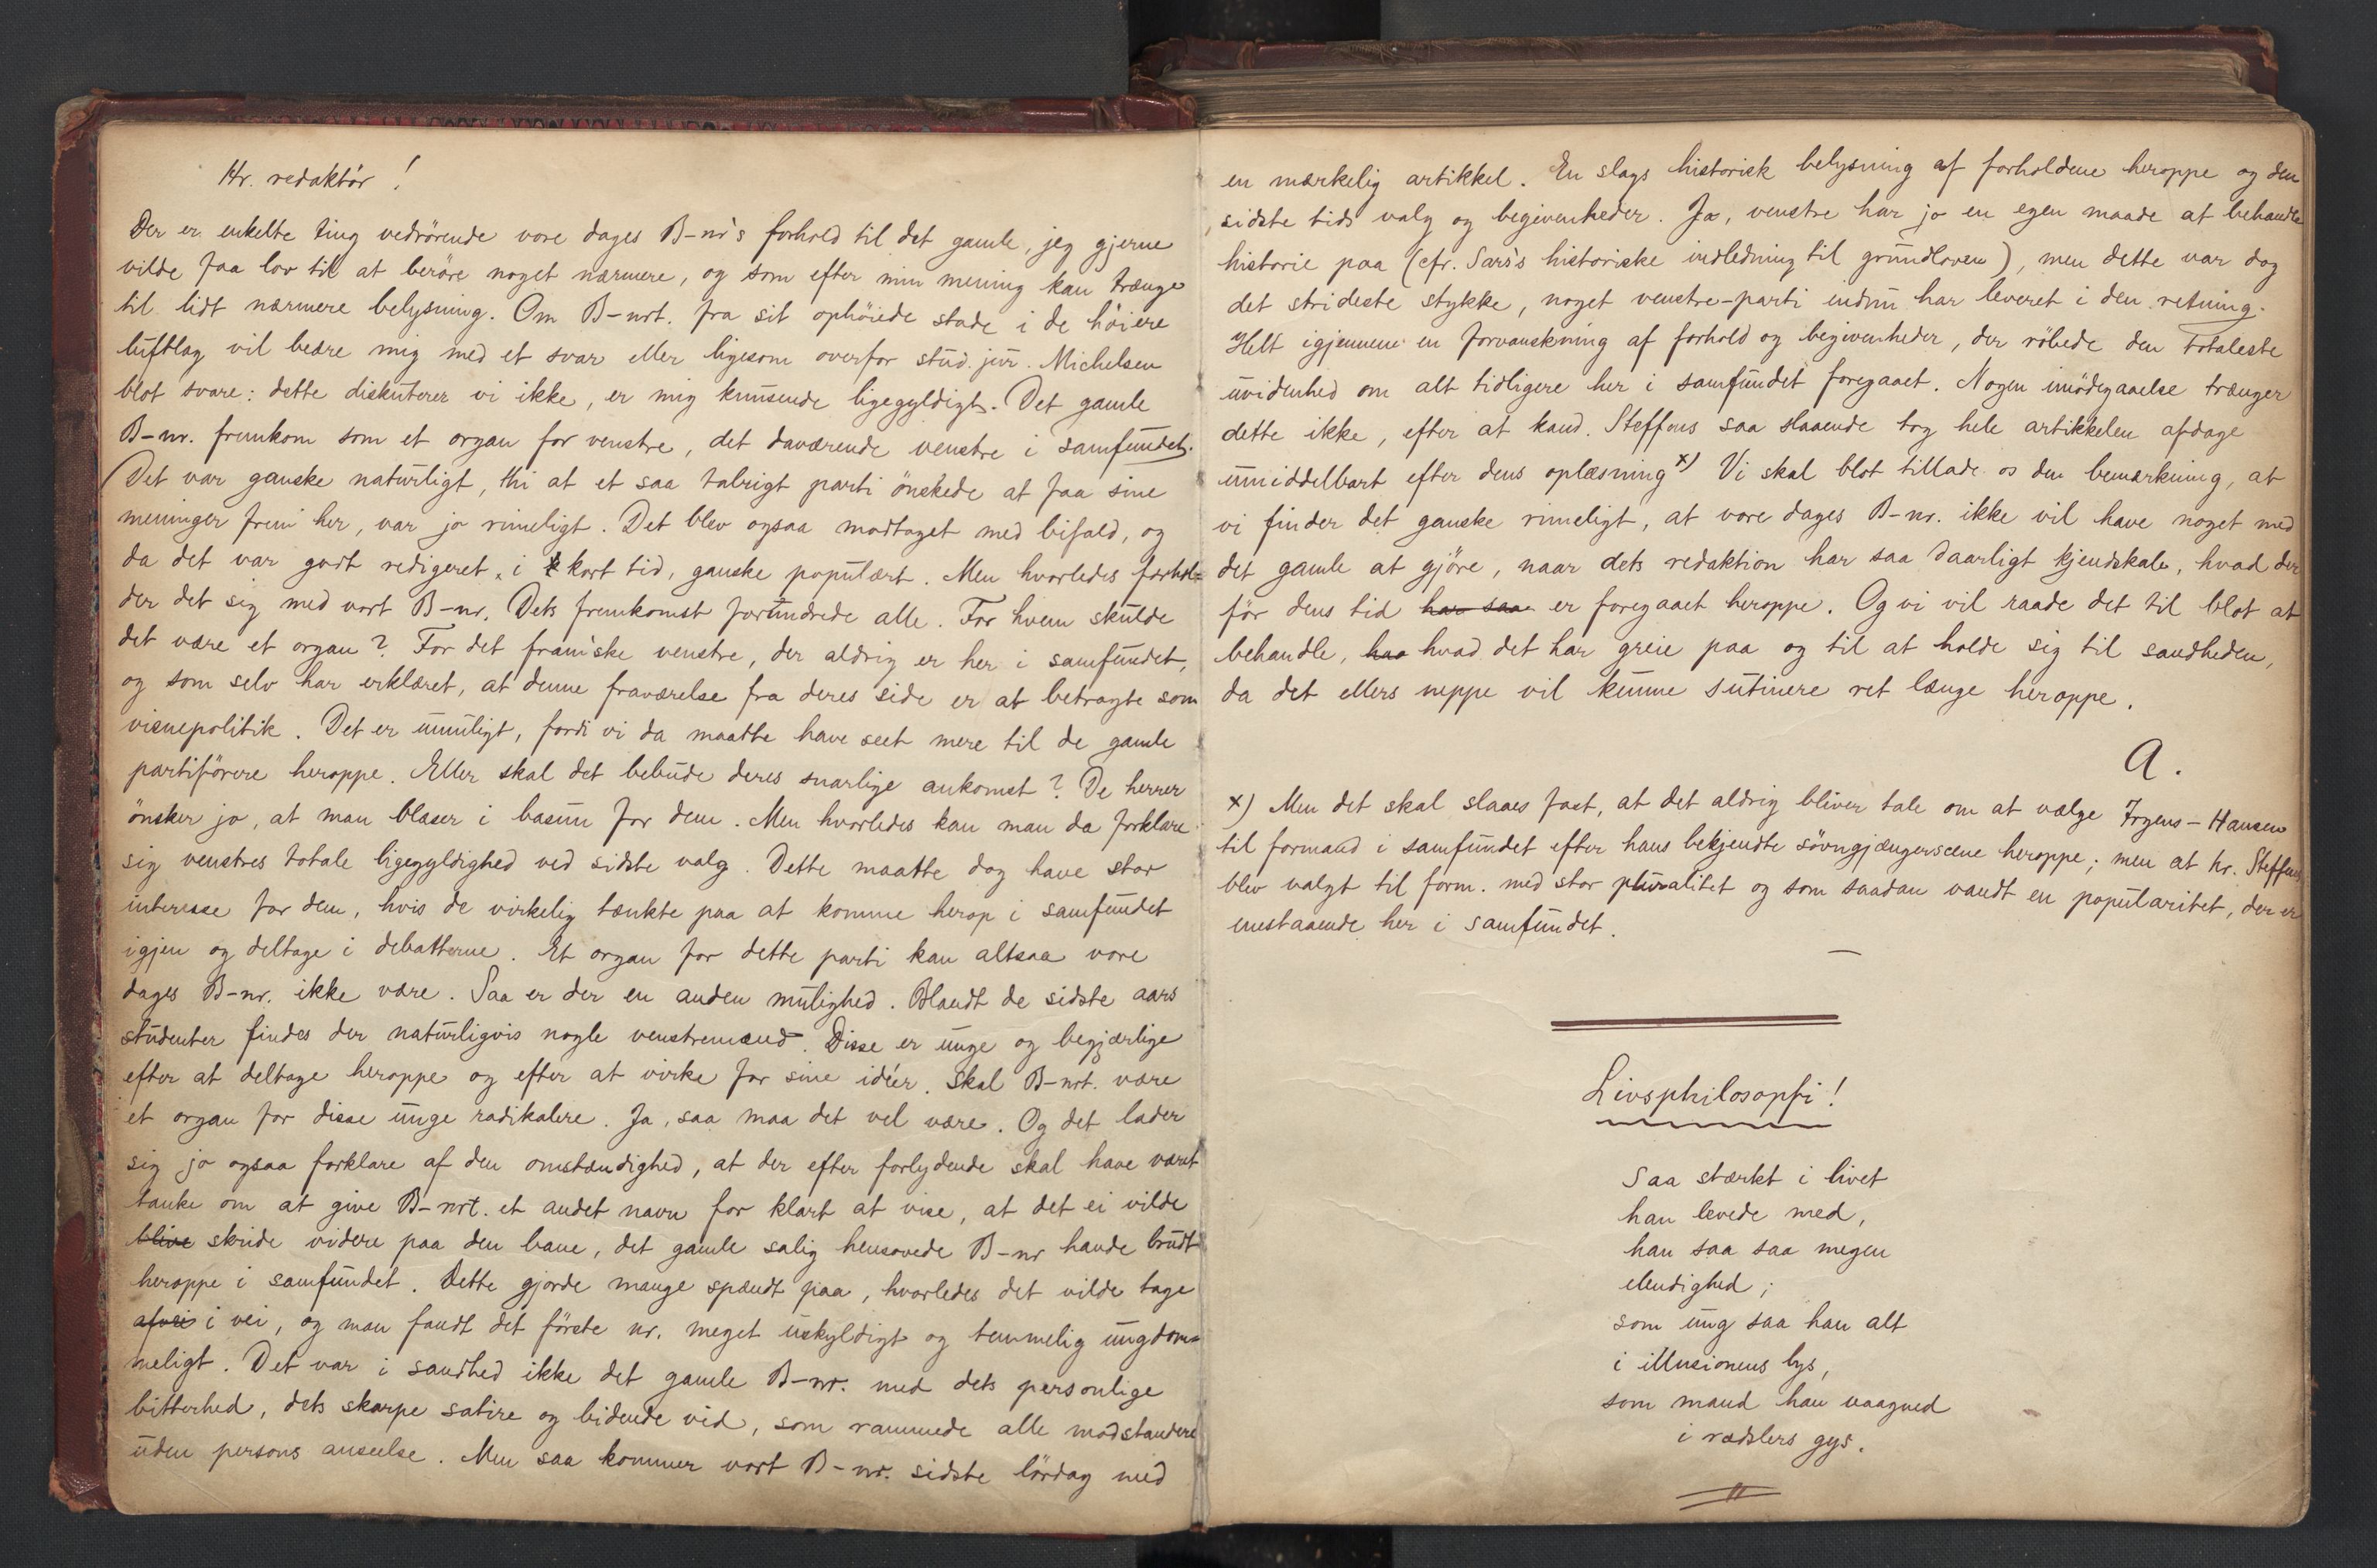 Hr. redaktör!
Der er enkelte ting vedrörende vore dages B-nr's forhold til det gamle, jeg gjerne
vilde faa lov til at beröre noget nærmere, og som efter min mening kan trænge
til lidt nærmere belysning. Om B-nrt. fra sit ophöiede stade i de höiere
luftlag vil beære mig med et svar eller ligesom overfor stud. jur. Michelsen
blot svare: dette diskuterer vi ikke, er mig knusende ligegyldigt. Det gamle
B-nr. fremkom som et organ for venstre, det daværende venstre i samfundet.
Det var ganske naturligt, thi at et saa talrigt parti önskede at faa sine
meninger frem her, var jo rimeligt. Det blev ogsaa modtaget med bifald, og
da det var godt redigeret, i kort tid, ganske populært. Men hvorledes forhol=
der det sig med vort B-nr. Dets fremkomst forundrede alle. For hvem skulde
det være et organ? For det fram'ske venstre, der aldrig er her i samfundet,
og som selv har erklæret, at denne fraværelse fra deres side er at betragte som
visnepolitik. Det er umuligt, fordi vi da maatte have seet mere til de gamle
partiförere heroppe. Eller skal det bebude deres snarlige ankomst? De herrer
önsker jo, at man blaser i basun for dem. Men hvorledes kan man da forklare
sig venstres totale ligegyldighed ved sidste valg. Dette maatte dog have stor
interesse for dem, hvis de virkelig tænkte paa at komme herop i samfundet
igjen og deltage i debatterne. Et organ for dette parti kan altsaa vore
dages B-nr. ikke være. Saa er der en anden mulighed. Blandt de sidste aars
studenter findes der naturligvis nogle venstremænd. Disse er unge og begjærlige
efter at deltage heroppe og efter at virke for sine idéer. Skal B-nrt. være
et organ for disse unge radikalere. Ja, saa maa det vel være. Og det lader
sig jo ogsaa forklare af den omstændighed, at der efter forlydende skal have været
tanke om at give B-nrt. et andet navn for klart at vise, at det ei vilde
blive skride videre paa den bane, det gamle salig hensovede B-nr havde brudt
heroppe i samfundet. Dette gjorde mange spændt paa, hvorledes det vilde tage
afvei i vei, og man fandt det förste nr. meget uskyldigt og temmelig ungdom=
meligt. Det var i sandhed ikke det gamle B-nr. med dets personlige
bitterhed, dets skarpe satire og bidende vid, som rammede alle modstandere
uden persons anseelse. Men saa kommer vort B-nr. sidste lördag med
en mærkelig artikkel. En slags historisk belysning af forholdene heroppe og den
sidste tids valg og begivenheder. Ja, venstre har jo en egen maade at behandle
historie paa (cfr. Sars's historiske indledning til grundloven), men dette var dog
det strideste stykke, noget venstre-parti endnu har leveret i den retning.
Helt igjennem en forvanskning af forhold og begivenheder, der röbede den totaleste
uvidenhed om alt tidligere her i samfundet foregaaet. Nogen imödegaaelse trænger
dette ikke, efter at kand. Steffens saa slaaende tog hele artikkelen afdage
umiddelbart efter dens oplæsning x) Vi skal blot tillade os den bemærkning, at
vi finder det ganske rimeligt, at vore dages B-nr. ikke vil have noget med
det gamle at gjöre, naar dets redaktion har saa daarligt kjendskab, hvad der
för dens tid har saa er foregaaet heroppe. Og vi vil raade det til blot at
behandle, haa hvad det har greie paa og til at holde sig til sandheden,
da det ellers neppe vil kunne sutinere ret længe heroppe.
A.
x) Men det skal slaaes fast, at det aldrig bliver tale om at vælge Irgens-Hansen
til formand i samfundet efter hans bekjendte sövngjængerscene heroppe; men at hr. Steffens
blev valgt til form. med stor pluralitet og som saadan vandt en popularitet, der er
enestaaende her i samfundet.
Livsphilosopfi!
Saa stærkt i livet
han levede med,
han saa saa megen
elendighed;
som ung saa han alt
i illusionens lys,
som mand han vaagned
i rædslers gys.